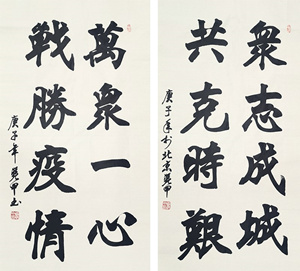 衆志成城
共克時艱
庚子年於北京
萬衆一心
戰勝疫情
庚子年